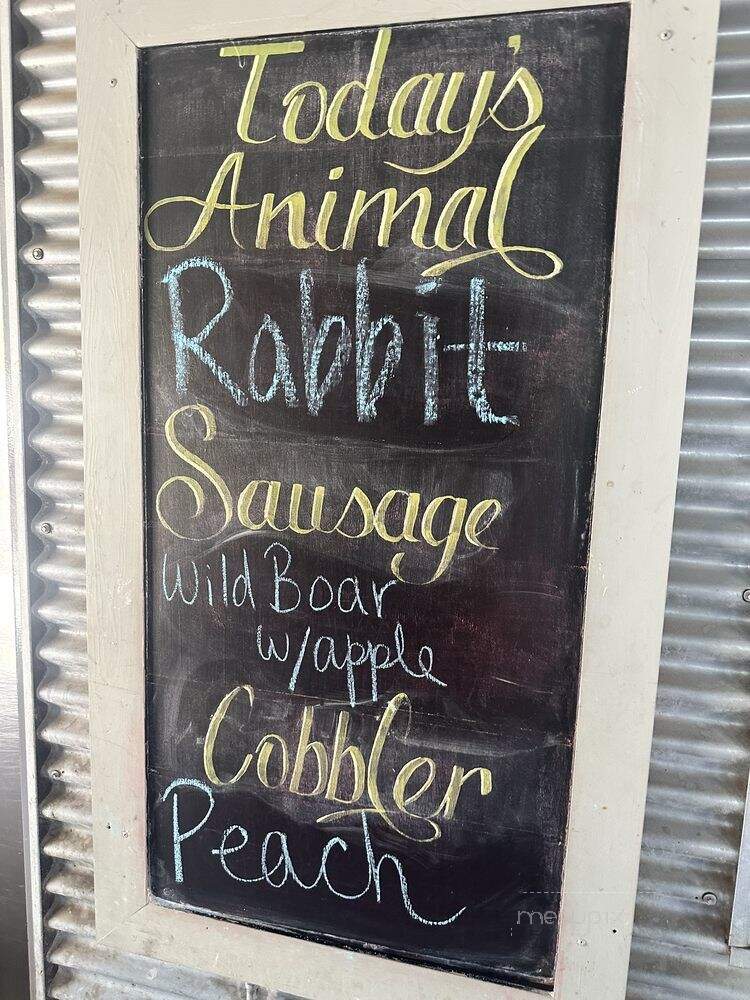 Today's
Animal
Rabbit
Sausage
Wild Boar
w/apple
Cobbler
Peach
menupix